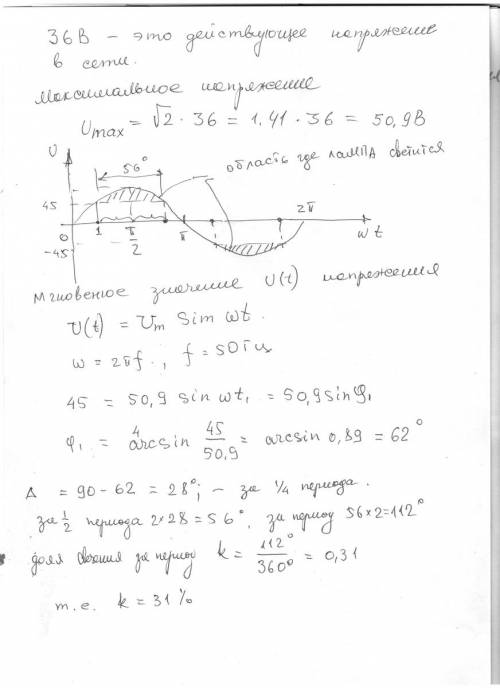 36В – это действующее напряжение
в сети.
Максимальное напряжение
Umax = √2 · 36 = 1,41 · 36 = 50,9В
U
56°
область где лампа светится
45
0
1
π/2
π
2π
ωt
-45
Мгновенное значение U(t) напряжения
U(t) = Um sin ωt.
ω = 2πf., f = 50 Гц
45 = 50,9 sin ωt₁ = 50,9 sin φ₁
φ₁ = arcsin 45/50,9 = arcsin 0,89 = 62°
Δ = 90-62 = 28°; – за 1/4 периода.
за 1/2 периода 2×28=56°, за период 56×2=112°
доля свечения за период k = 112°/360° = 0,31
т.е. k = 31%